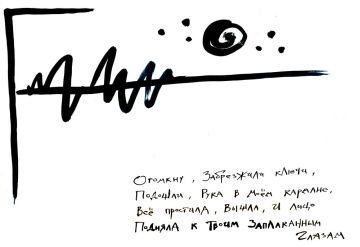 Отомкну, Забрезжала ключи,
Подошла, Рука в моём кармане,
Всё простила, Вышла, и лицо
Подняла к Твоим Заплаканным
Глазам